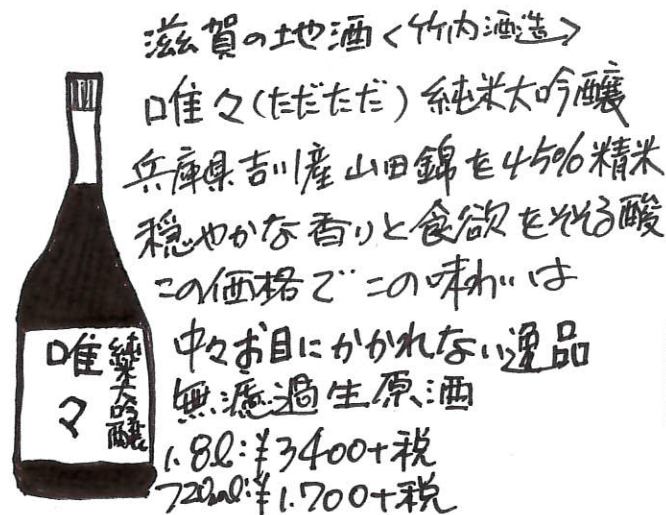 滋賀の地酒<竹内酒造>
唯々(ただただ)純米大吟醸
兵庫県吉川産山田錦を45%精米
穏やかな香りと食欲をそそる酸
この価格でこの味わいは
中々お目にかかれない逸品
無濾過生原酒
1.8ℓ:¥3400+税
720mℓ:¥1.700+税
純米大吟醸
唯々